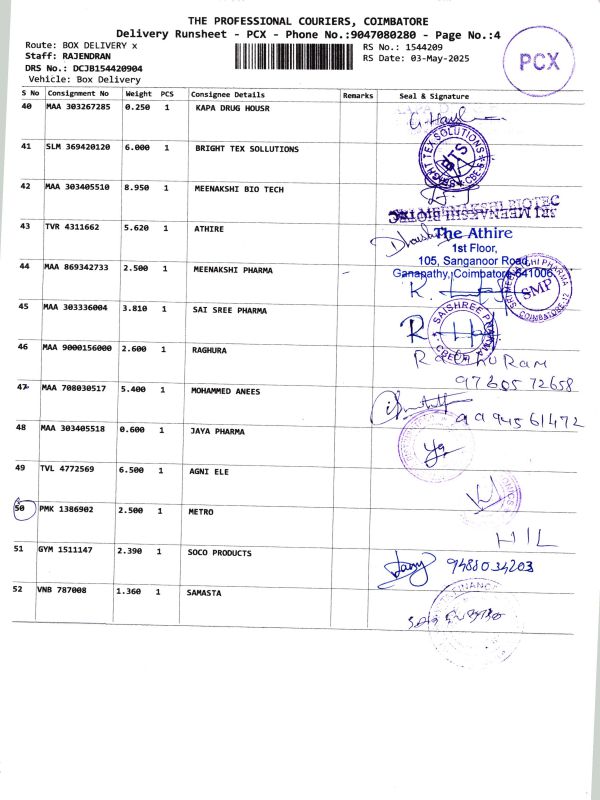 THE PROFESSIONAL COURIERS, COIMBATORE
Delivery Runsheet - PCX - Phone No.:9047080280 - Page No.:4
Route: BOX DELIVERY x
Staff: RAJENDRAN
DRS No.: DCJB154420904
Vehicle: Box Delivery
RS No.: 1544209
RS Date: 03-May-2025
PCX
S No Consignment No Weight PCS Consignee Details Remarks Seal & Signature
40 MAA 303267285 0.250 1 KAPA DRUG HOUSR
41 SLM 369420120 6.000 1 BRIGHT TEX SOLLUTIONS
BRIGHT TEX SOLUTIONS BTS
42 MAA 303405510 8.950 1 MEENAKSHI BIO TECH
SRI MEENAKSHI BIOTEC
43 TVR 4311662 5.620 1 ATHIRE
The Athire
1st Floor,
105, Sanganoor Road,
Ganapathy, Coimbatore 641006
44 MAA 869342733 2.500 1 MEENAKSHI PHARMA
SRI MEENAKSHI PHARMA SMP COIMBATORE-12
45 MAA 303336004 3.810 1 SAI SREE PHARMA
SAI SHREE PHARMA
46 MAA 9000156000 2.600 1 RAGHURA
RAGHU RAM
97605 72658
47 MAA 708030517 5.400 1 MOHAMMED ANEES
9994561472
48 MAA 303405518 0.600 1 JAYA PHARMA
49 TVL 4772569 6.500 1 AGNI ELE
50 PMK 1386902 2.500 1 METRO
HIL
51 GYM 1511147 2.390 1 SOCO PRODUCTS
9488034203
52 VNB 787008 1.360 1 SAMASTA
FINANC